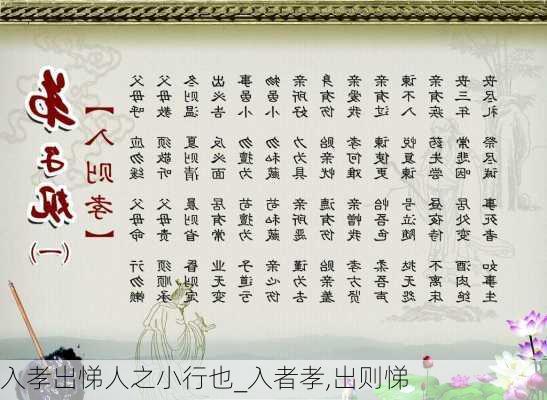 弟子规
(一)
【入则孝】
父母呼 应勿缓 父母命 行勿懒
父母教 须敬听 父母责 须顺承
冬则温 夏则清 晨则省 昏则定
出必告 反必面 居有常 业无变
事虽小 勿擅为 苟擅为 子道亏
物虽小 勿私藏 苟私藏 亲心伤
亲所好 力为具 亲所恶 谨为去
身有伤 贻亲忧 德有伤 贻亲羞
亲爱我 孝何难 亲憎我 孝方贤
亲有过 谏使更 怡吾色 柔吾声
谏不入 悦复谏 号泣随 挞无怨
亲有疾 药先尝 昼夜侍 不离床
丧三年 常悲咽 居处变 酒肉绝
丧尽礼 祭尽诚 事死者 如事生
入孝出悌人之小行也_入者孝,出则悌